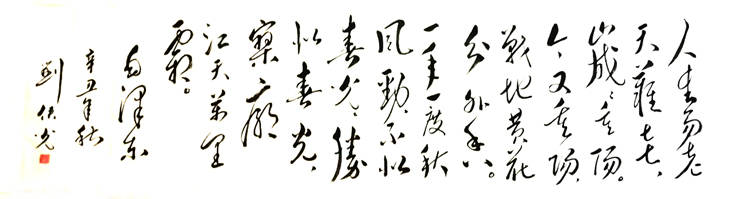 人生易老
天難老、
歲〻重陽。
今又重陽，
戰地黃花
分外香。
一年一度秋
風勁，不似
春光，勝
似春光，
寥廓
江天萬里
霜。
毛澤東
辛丑年秋
劉光